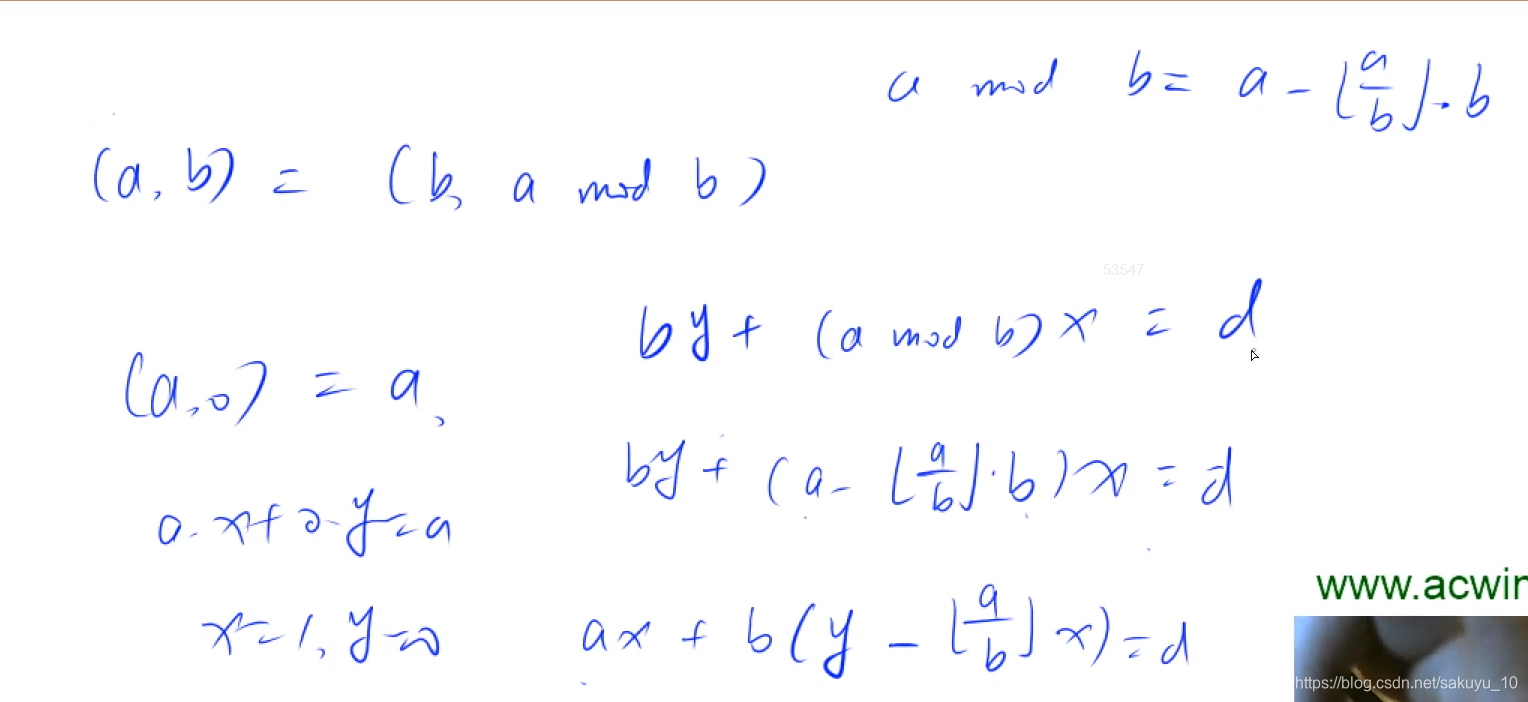 a mod b = a - ⌊a/b⌋·b
(a, b) = (b, a mod b)
53547
by + (a mod b)x = d
(a, 0) = a,
by + (a - ⌊a/b⌋·b)x = d
a·x + 0·y = a
x=1, y=0
ax + b(y - ⌊a/b⌋x) = d
www.acwin
https://blog.csdn.net/sakuyu_10